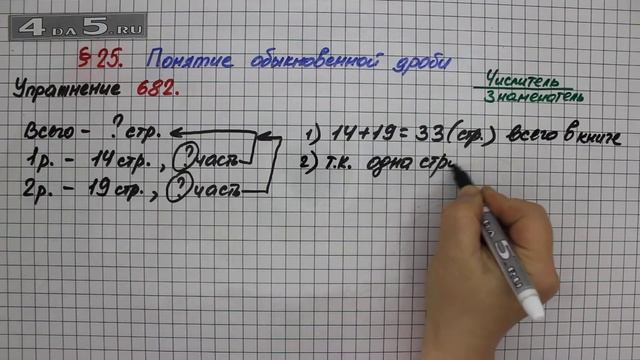 4DA5.RU
§ 25. Понятие обыкновенной дроби
Упражнение 682.
Числитель
Знаменатель
Всего - ? стр.
1р. - 14 стр., ? часть
2р. - 19 стр., ? часть
1) 14+19=33(стр.) всего в книге
2) т.к. одна стр
4DA5.RU